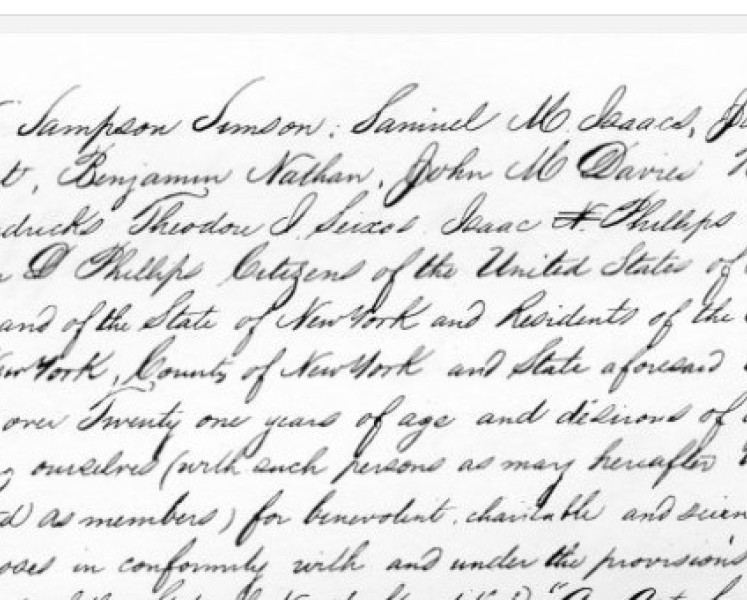 Sampson Simson, Samuel M. Isaacs, Jo
t, Benjamin Nathan, John M Davies
dricks Theodore J. Seixas Isaac N. Phillips
D Phillips Citizens of the United States of
and of the State of New York and Residents of the
New York, County of New York and State aforesaid
over Twenty one years of age and desirous of
g ourselves (with such persons as may hereafter
ed as members) for benevolent, charitable and scien
oses in conformity with and under the provisions
"An Act